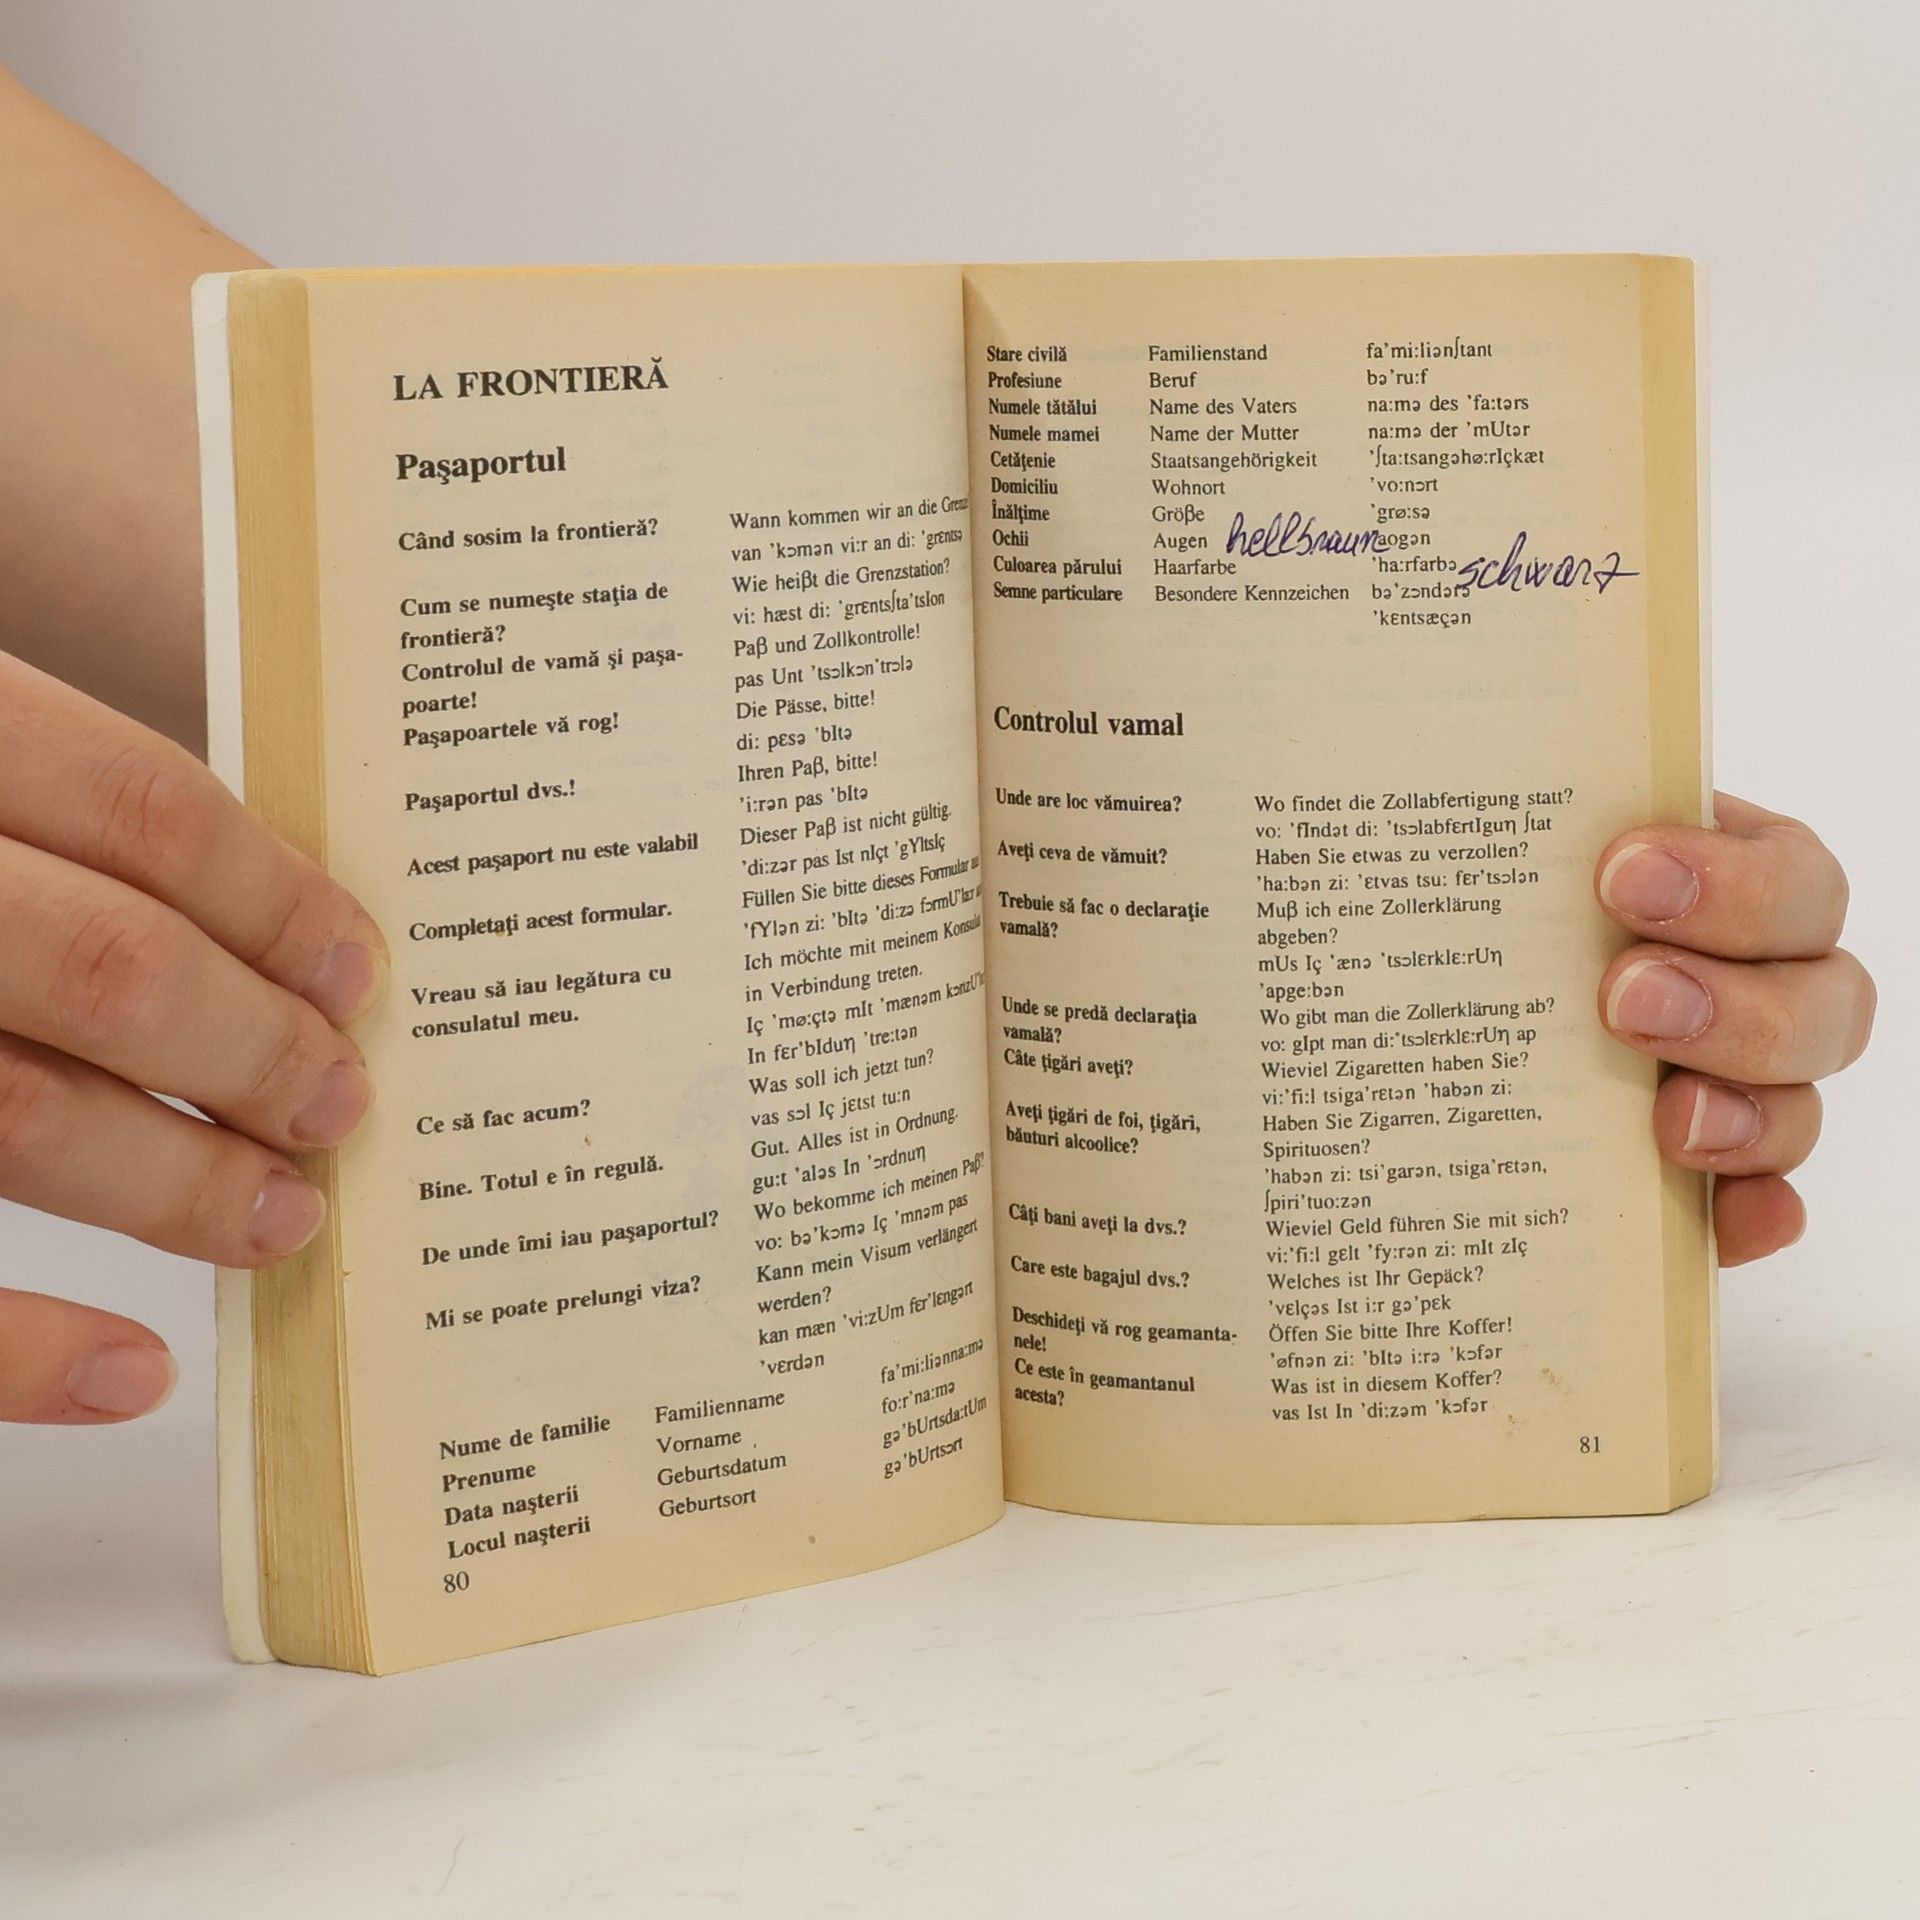 LA FRONTIERĂ
Paşaportul
Când sosim la frontieră? Wann kommen wir an die
van 'kɔmən vi:r an di: 'grɛntsə
Cum se numeşte staţia de Wie heiβt die Grenzstation?
frontieră? vi: hæst di: 'grɛntsʃta'tsIon
Controlul de vamă şi paşa- Paβ und Zollkontrolle!
poarte! pas Unt 'tsɔlkɔn'trɔlə
Paşapoartele vă rog! Die Pässe, bitte!
di: pɛsə 'bItə
Paşaportul dvs.! Ihren Paβ, bitte!
'i:rən pas 'bItə
Acest paşaport nu este valabil Dieser Paβ ist nicht gültig.
'di:zər pas Ist nIçt 'gYltsIç
Completaţi acest formular. Füllen Sie bitte dieses Formular
'fYlən zi: 'bItə 'di:zə
Vreau să iau legătura cu Ich möchte mit meinem
consulatul meu. in Verbindung treten.
Iç 'mø:çtə mIt 'mænəm
In fɛr'bIduη 'tre:tən
Ce să fac acum? Was soll ich jetzt tun?
vas sɔl Iç jɛtst tu:n
Bine. Totul e în regulă. Gut. Alles ist in Ordnung.
gu:t 'aləs In 'ɔrdnuη
De unde îmi iau paşaportul? Wo bekomme ich meinen Paβ?
vo: bə'kɔmə Iç 'mnəm pas
Mi se poate prelungi viza? Kann mein Visum verlängert
werden?
kan mæn 'vi:zUm fɛr'lɛngərt
'vɛrdən
Nume de familie Familienname fa'mi:liənna:mə
Prenume Vorname fo:r'na:mə
Data naşterii Geburtsdatum gə'bUrtsda:tUm
Locul naşterii Geburtsort gə'bUrtsɔrt
80
Stare civilă Familienstand fa'mi:liənʃtant
Profesiune Beruf bə'ru:f
Numele tătălui Name des Vaters na:mə des 'fa:tərs
Numele mamei Name der Mutter na:mə der 'mUtər
Cetăţenie Staatsangehörigkeit 'ʃta:tsangəhø:rIçkæt
Domiciliu Wohnort 'vo:nɔrt
Înălţime Gröβe 'grø:sə
Ochii Augen hellbraun aogən
Culoarea părului Haarfarbe 'ha:rfarbə schwarz
Semne particulare Besondere Kennzeichen bə'zɔndərə
'kɛntsæçən
Controlul vamal
Unde are loc vămuirea? Wo findet die Zollabfertigung statt?
vo: 'fIndət di: 'tsɔlabfɛrtIguη ʃtat
Aveţi ceva de vămuit? Haben Sie etwas zu verzollen?
'ha:bən zi: 'ɛtvas tsu: fɛr'tsɔlən
Trebuie să fac o declaraţie Muβ ich eine Zollerklärung
vamală? abgeben?
mUs Iç 'ænə 'tsɔlɛrklɛ:rUη
'apge:bən
Unde se predă declaraţia Wo gibt man die Zollerklärung ab?
vamală? vo: gIpt man di:'tsɔlɛrklɛ:rUη ap
Câte ţigări aveţi? Wieviel Zigaretten haben Sie?
vi:'fi:l tsiga'rɛtən 'habən zi:
Aveţi ţigări de foi, ţigări, Haben Sie Zigarren, Zigaretten,
băuturi alcoolice? Spirituosen?
'habən zi: tsi'garən, tsiga'rɛtən,
ʃpiri'tuo:zən
Câţi bani aveţi la dvs.? Wieviel Geld führen Sie mit sich?
vi:'fi:l gɛlt 'fy:rən zi: mIt zIç
Care este bagajul dvs.? Welches ist Ihr Gepäck?
'vɛlçəs Ist i:r gə'pɛk
Deschideţi vă rog geamanta- Öffen Sie bitte Ihre Koffer!
nele! 'øfnən zi: 'bItə i:rə 'kɔfər
Ce este în geamantanul Was ist in diesem Koffer?
acesta? vas Ist In 'di:zəm 'kɔfər
81